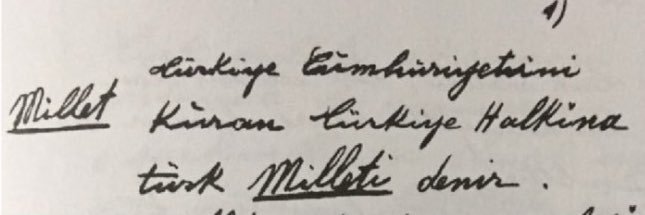 1)
Türkiye Cümhuriyetini
Millet Kuran Türkiye Halkına
türk Milleti denir.